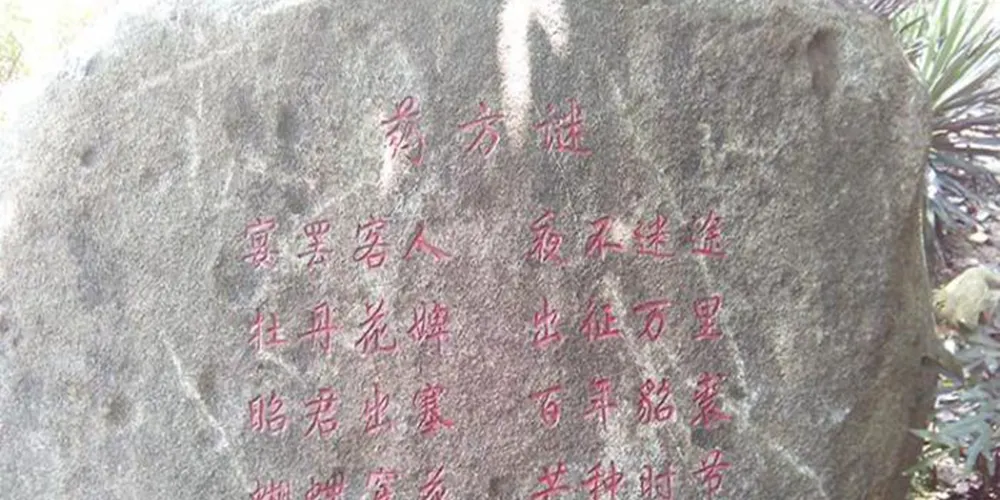 药方谜
宴罢客人 夜不迷途
牡丹花婢 出征万里
昭君出塞 百年貂裘
蝴蝶穿花 芒种时节